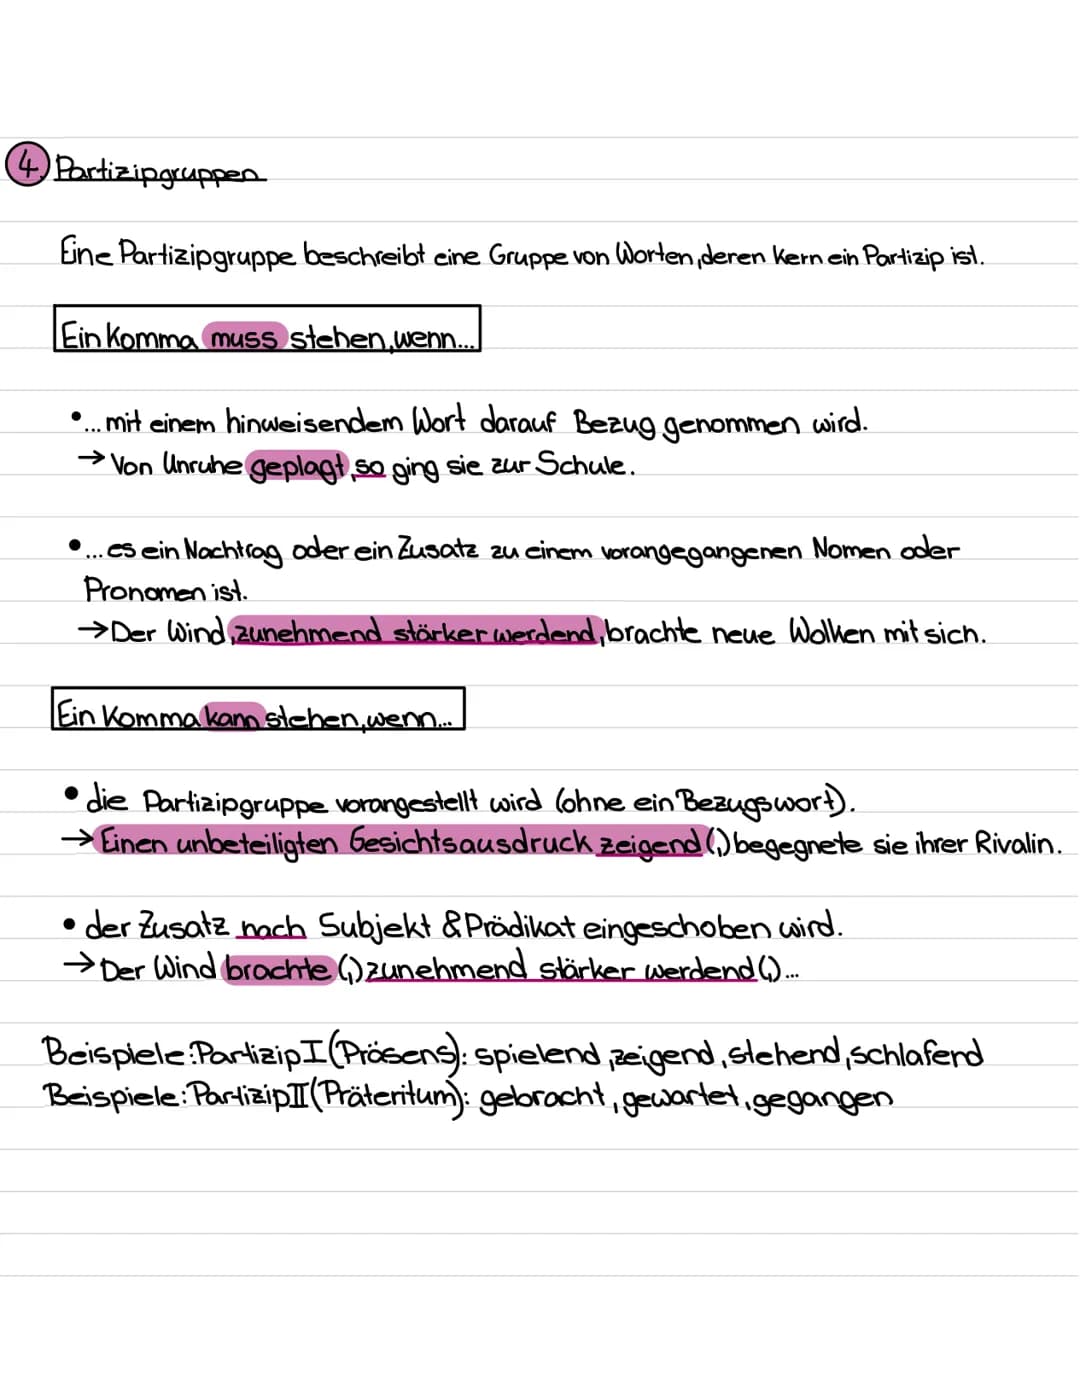 4. Partizipgruppen
Eine Partizipgruppe beschreibt eine Gruppe von Worten, deren Kern ein Partizip ist.
Ein Komma muss stehen, wenn...
•... mit einem hinweisendem Wort darauf Bezug genommen wird.
→ Von Unruhe geplagt, so ging sie zur Schule.
•... es ein Nachtrag oder ein Zusatz zu einem vorangegangenen Nomen oder
Pronomen ist.
→ Der Wind, zunehmend stärker werdend, brachte neue Wolken mit sich.
Ein Komma kann stehen, wenn...
• die Partizipgruppe vorangestellt wird (ohne ein Bezugswort).
→ Einen unbeteiligten Gesichtsausdruck zeigend (,) begegnete sie ihrer Rivalin.
• der Zusatz nach Subjekt & Prädikat eingeschoben wird.
→ Der Wind brachte (,) zunehmend stärker werdend (,)...
Beispiele: Partizip I (Präsens): spielend, zeigend, stehend, schlafend
Beispiele: Partizip II (Präteritum): gebracht, gewartet, gegangen